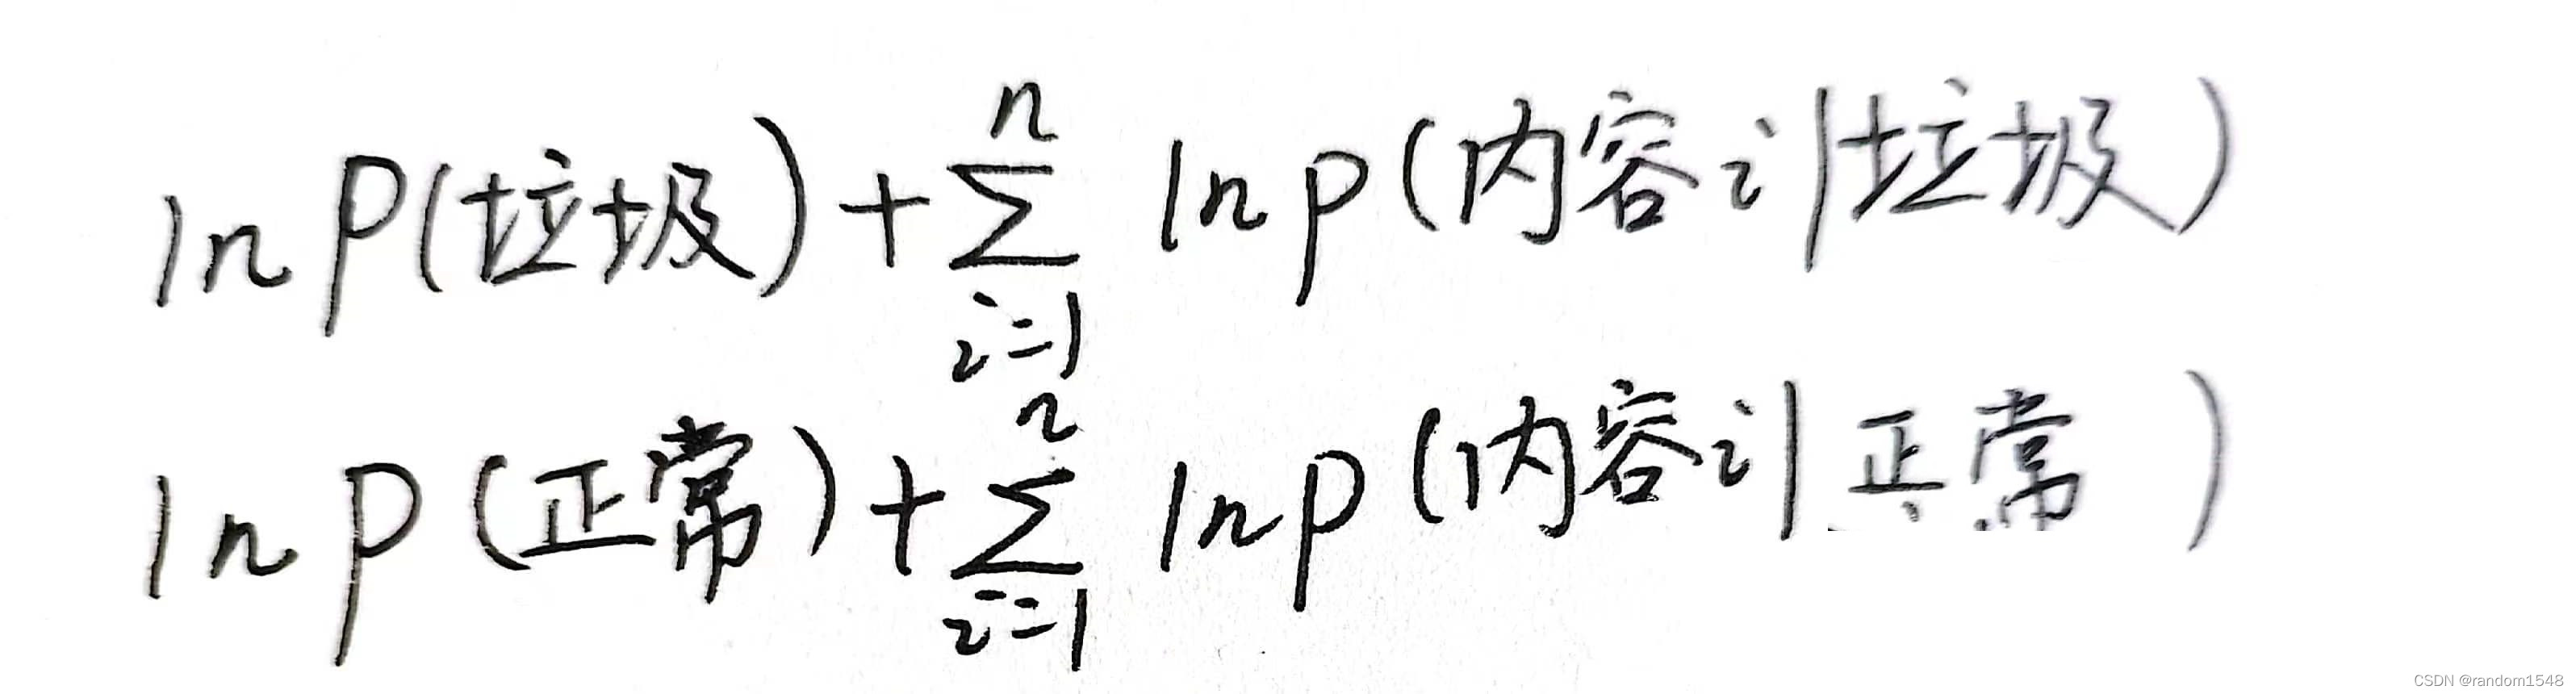 ln P(垃圾) + \sum_{i=1}^{n} ln p(内容i|垃圾)
ln P(正常) + \sum_{i=1}^{n} ln p(内容i|正常)
CSDN @random1548